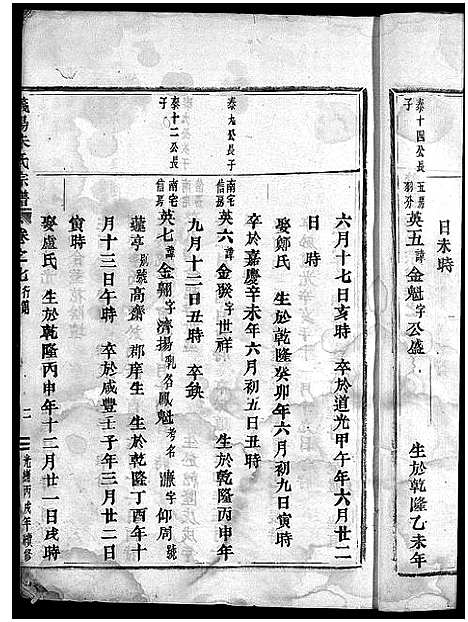 泰十四公長子
五房羽分
英五諱金魁字公盛 生於乾隆乙未年
日未時
六月十七日亥時 卒於道光甲午年六月廿二
日時
娶鄭氏 生於乾隆癸卯年六月初九日寅時
卒於嘉慶辛未年六月初五日丑時
泰九公長子
南宅信房
英六諱金猴字世祥 生於乾隆丙申年
九月十二日丑時 卒缺
泰十二公長子
南宅信房
英七諱金翱字濟揚乳名鳳魁考名 字仰周號
蓮亭別號高齋 郡庠生 生於乾隆丁酉年十
月十三日午時 卒於咸豐壬子年三月廿二日
寅時
娶盧氏 生於乾隆丙申年十二月廿一日戌時
朱氏宗譜 卷之七行 二 光緒丙戌年續修